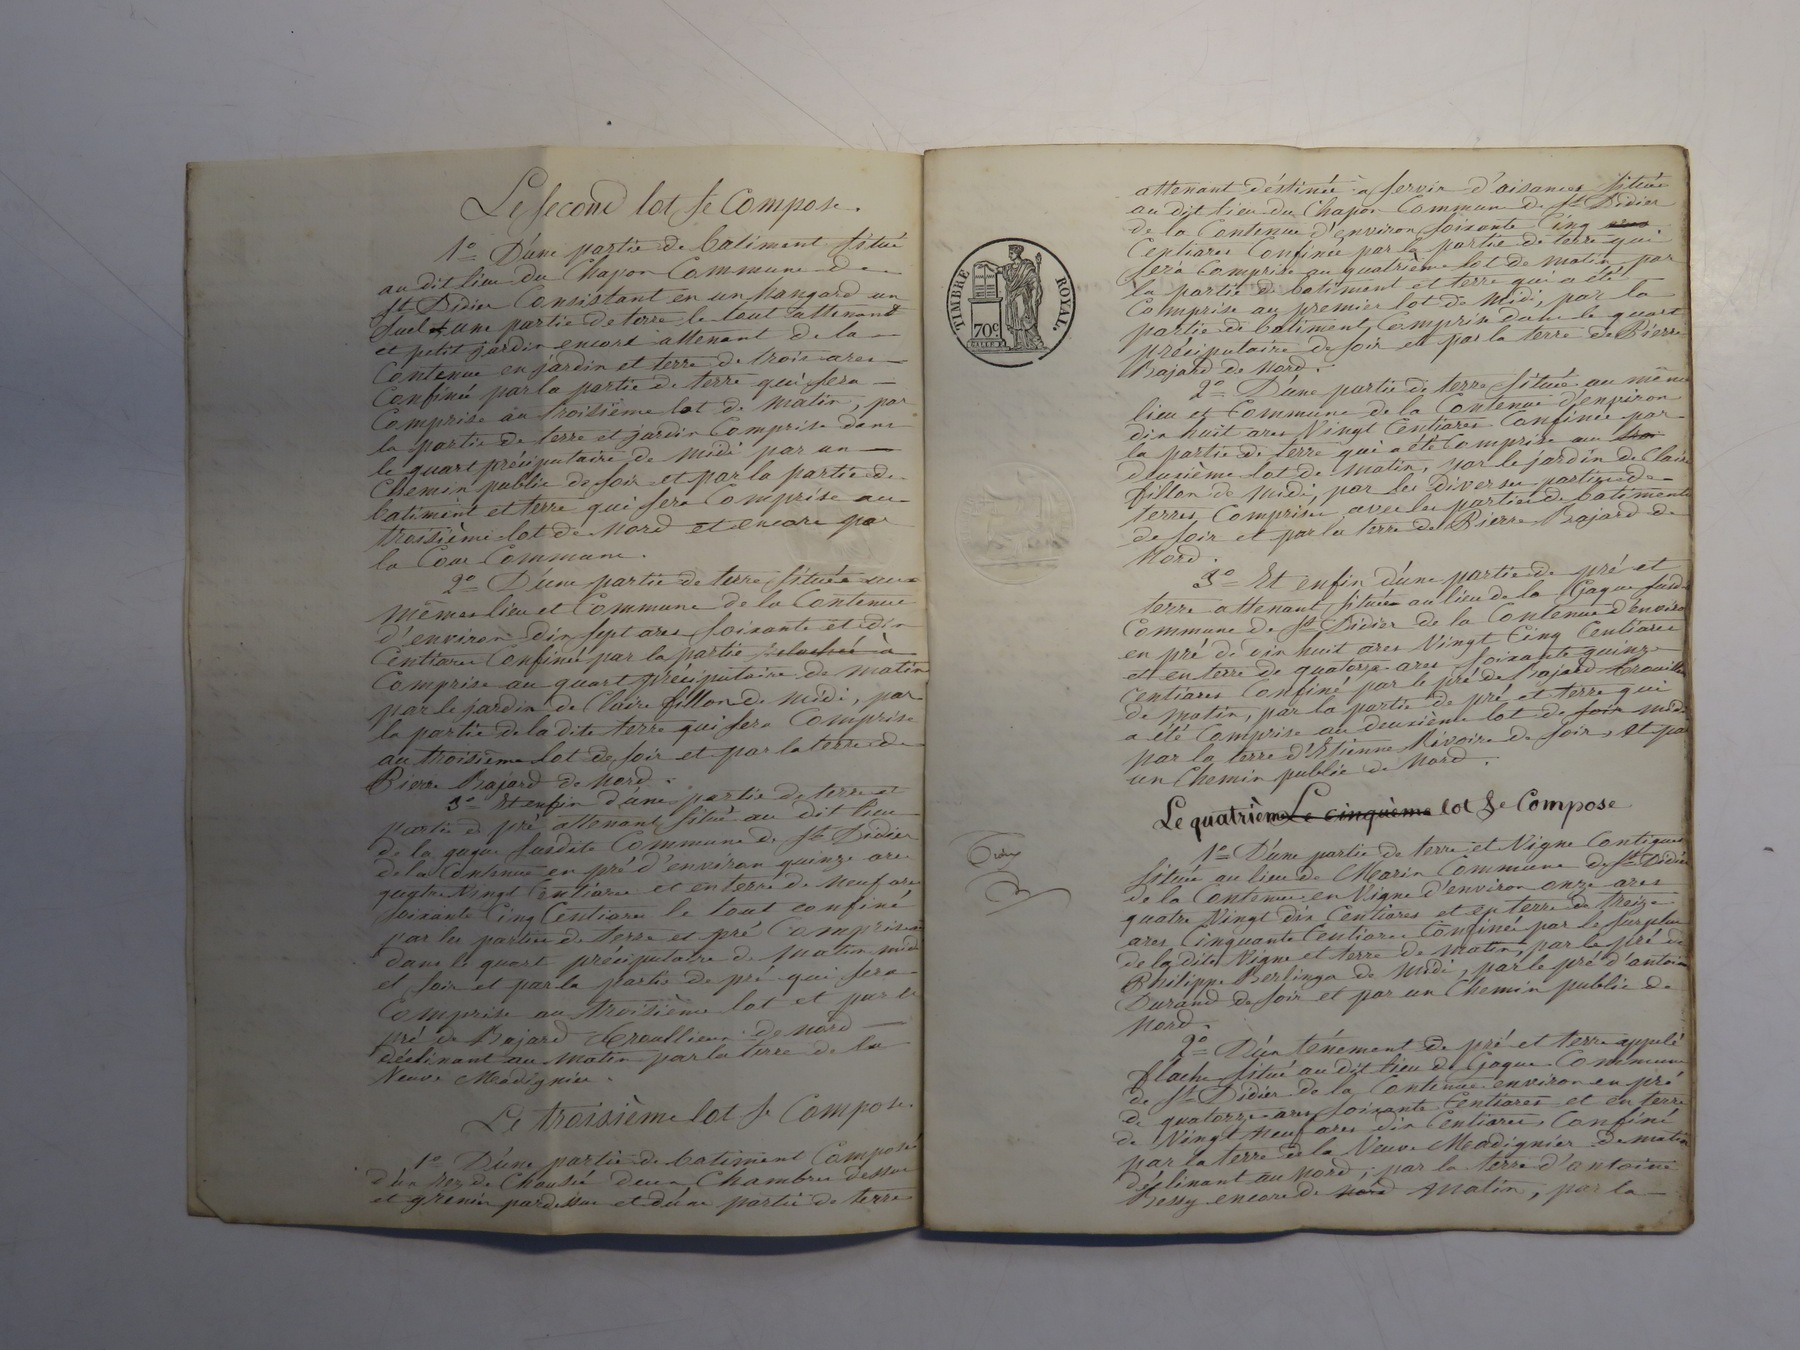 Le second lot se compose.
1º D'une partie de batiment situé
au dit lieu du Chapon Commune de
St Didier Consistant en un hangard un
suel et une partie de terre le tout attenant
et petit jardin encore attenant de la
Contenue en jardin et terre de trois ares
Confiné par la partie de terre qui sera
Comprise au troisième lot de matin, par
la partie de terre et jardin Comprise dans
le quart préciputaire de midi par un
Chemin public de soir et par la partie de
batiment et terre qui sera Comprise au
troisième lot de nord et encore par
la Cour Commune.
2º D'une partie de terre située au
même lieu et Commune de la Contenue
d'environ dix sept ares soixante et dix
Centiares Confinée par la partie
Comprise au quart préciputaire de matin
par le jardin de Claire fillon de midi, par
la partie de la dite terre qui sera Comprise
au troisième lot de soir et par la terre de
Pierre Bajard de nord.
3º Et enfin d'une partie de terre et
partie de pré attenant situé au dit lieu
de la gaque susdite Commune de St Didier
de la Contenue en pré d'environ quinze ares
quatre vingt Centiares et en terre de neuf ares
soixante Cinq Centiares le tout confiné
par les parties de terre et pré Comprises
dans le quart préciputaire de matin midi
et soir et par la partie de pré qui sera
Comprise au troisième lot et par le
pré de Bajard Trouilleux de nord
déclinant au matin par la terre de la
Veuve Madignier.
Le troisième lot se Compose.
1º D'une partie de batiment Composé
d'un rez de Chaussé deux Chambres dessus
et grenier par dessus et d'une partie de terre
TIMBRE ROYAL.
70c
attenant déstinée à servir d'aisances située
au dit lieu du Chapon Commune de St Didier
de la Contenue d'environ soixante Cinq
Centiares Confinée par la partie de terre qui
sera Comprise au quatrième lot de matin par
la partie de batiment et terre qui a été
Comprise au premier lot de midi, par la
partie de batiment Comprise dans le quart
préciputaire de soir et par la terre de Pierre
Bajard de nord.
2º D'une partie de terre située au même
lieu et Commune de la Contenue d'environ
dix huit ares Vingt Centiares Confinée par
la partie de terre qui a été Comprise au
deuxième lot de matin, par le jardin de Claire
fillon de midi, par les diverses parties de
terres Comprises avec les parties de batiments
de soir et par la terre de Pierre Bajard de
Nord.
3º Et enfin d'une partie de pré et
terre attenant située au lieu de la Gaque susdite
Commune de St Didier de la Contenue d'environ
en pré de dix huit ares Vingt Cinq Centiares
et en terre de quatorze ares soixante quinze
Centiares Confiné par le pré de Bajard Trouilleux
de matin, par la partie de pré et terre qui
a été Comprise au deuxième lot de soir midi
par la terre d'Etienne Rivoire de soir, et par
un Chemin public de Nord.
Le quatrième Le cinquième lot se Compose
1º D'une partie de terre et Vigne Contigue
située au lieu de Marin Commune de St Didier
de la Contenue en Vigne d'environ onze ares
quatre Vingt dix Centiares et en terre de treize
ares Cinquante Centiares Confinée par le surplus
de la dite Vigne et terre de matin, par le pré de
Philippe Berlinga de midi, par le pré d'antoine
Durand de soir et par un Chemin public de
Nord.
2º D'un ténement de pré et terre appelé
flache situé au dit lieu de Gaque Commune
de St Didier de la Contenue environ en pré
de quatorze ares soixante Centiares et en terre
de Vingt neuf ares dix Centiares Confiné
par la terre de la Veuve Madignier de matin
déclinant au nord, par la terre d'antoine
Bessy encore de nord Matin, par la